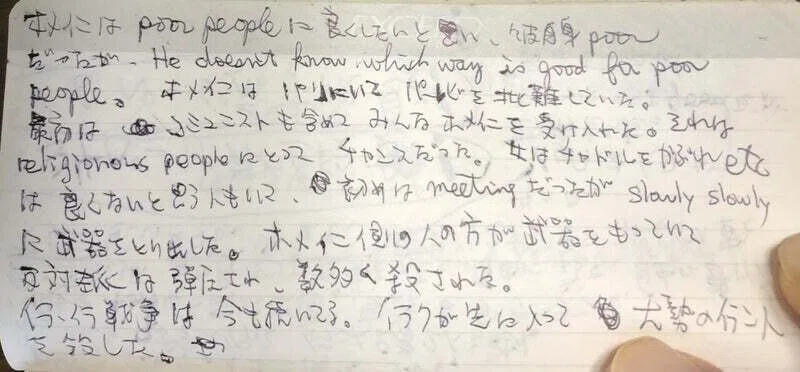 ホメイニは poor people に良くしたいと思い、彼自身 poor
だったが、He doesn't know which way is good for poor
people。 ホメイニは パリにいて パーレビを批難していた。
最初は コミュニストも含めて みんなホメイニを受け入れた。それは
religionous people にとって チャンスだった。女はチャドルをかぶれ etc
は良くないと思う人もいて、初めは meeting だったが slowly slowly
に武器をとり出した。ホメイニ側の人の方が武器をもっていて
反対派には弾圧され、数多く殺された。
イラ、イラ戦争は今も続いてる。イラクが先に入って 大勢のイラン人
を殺した。